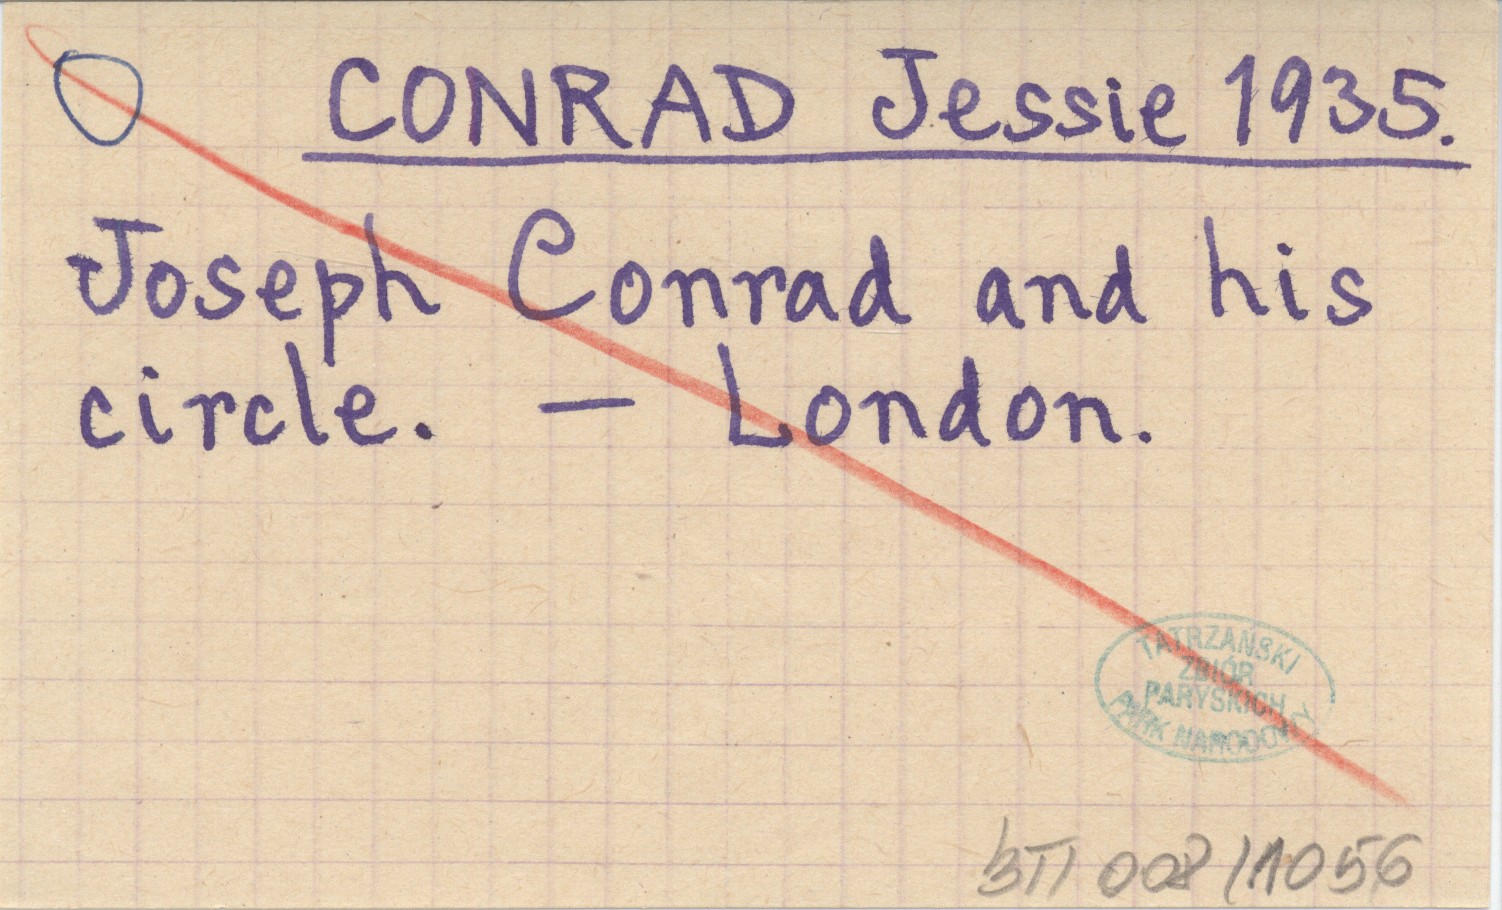 CONRAD Jessie 1935.
Joseph Conrad and his
circle. — London.
TATRZAŃSKI
ZBIÓR
PARYSKICH
PARK NARODOWY
008/1056